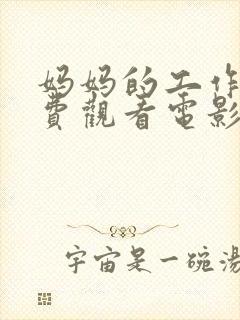 妈妈的工作
费觀看電影
宇宙是一碗湯